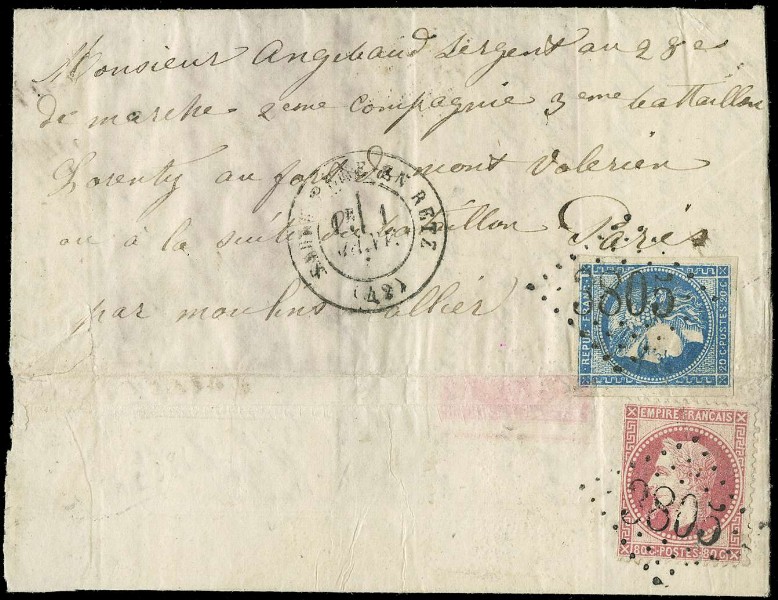 Monsieur Angebaud Sergent au 28e
de marche 2eme Compagnie 3eme bataillon
Lorenty au fort du mont Valerien
ou à la suite du bataillon Paris
par moulins allier
EN RETZ
1
JANV.
(42)
3805
REPUB. FRANC.
20 C. POSTES 20 C.
EMPIRE FRANÇAIS
3805
80 C POSTES 80 C